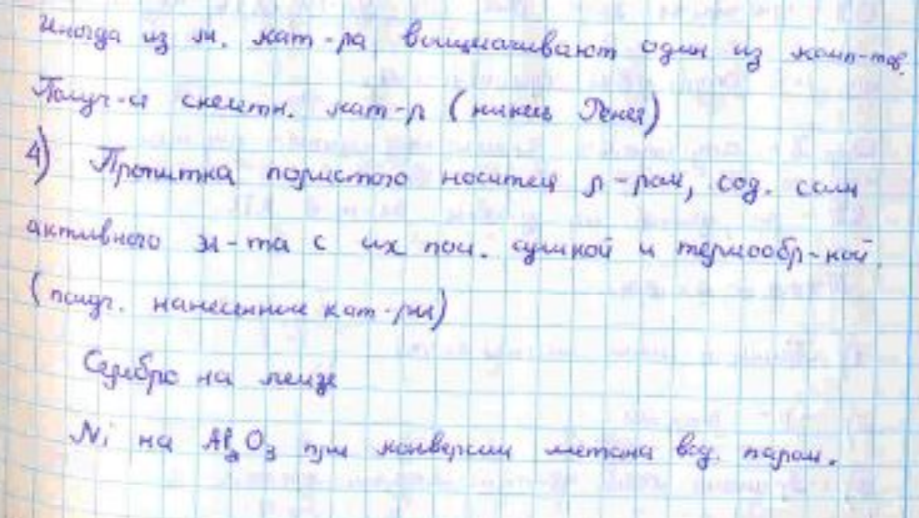 Иногда из м. кат-ра выщелачивают один из комп-тов.
Получ-ся скелетн. кат-р (никель Ренея)
4) Пропитка пористого носителя р-рам, сод. соли
активного эл-та с их посл. сушкой и термообр-кой.
(получ. нанесенные кат-ры)
Серебро на пемзе
Ni на Al₂O₃ при конверсии метана вод. паром.